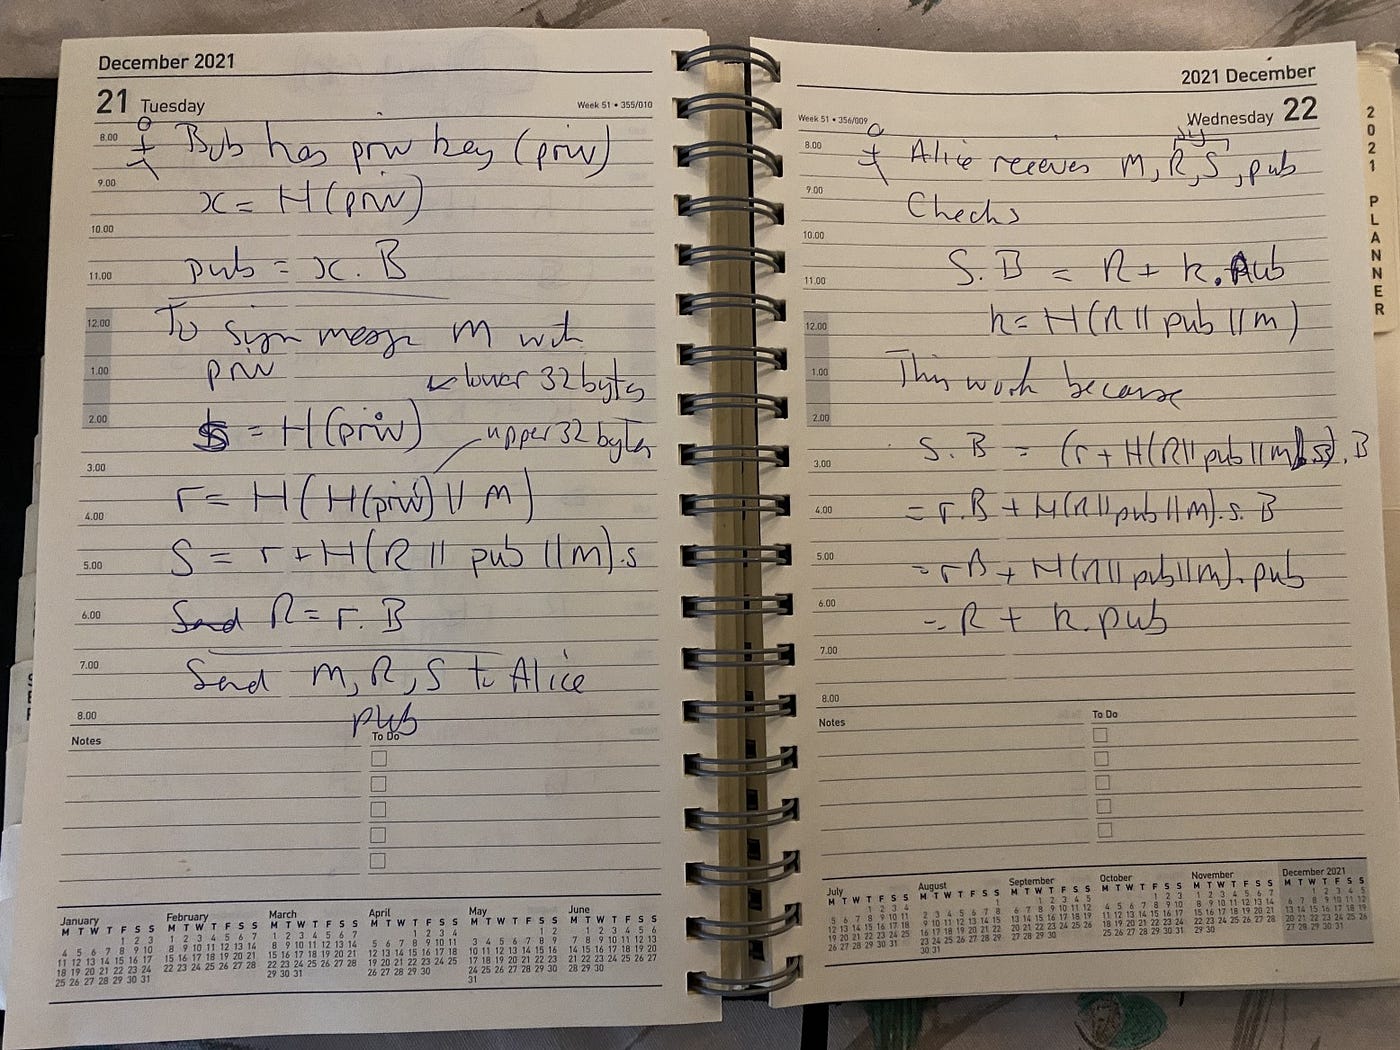 December 2021
21 Tuesday
Week 51 • 355/010
8.00
Bob has priv key (priv)
9.00
x = H(priv)
10.00
pub = x.B
11.00
12.00
To sign messge M with
1.00
priv
lower 32 bytes
2.00
= H(priv)
upper 32 bytes
3.00
r = H(H(priv) || M)
4.00
S = r + H(R || pub || m).s
5.00
6.00
Send R = r.B
7.00
Send M, R, S to Alice
8.00
pub
Notes
To Do
January
M T W T F S S
1 2 3
4 5 6 7 8 9 10
11 12 13 14 15 16 17
18 19 20 21 22 23 24
25 26 27 28 29 30 31
February
M T W T F S S
1 2 3 4 5 6 7
8 9 10 11 12 13 14
15 16 17 18 19 20 21
22 23 24 25 26 27 28
March
M T W T F S S
1 2 3 4 5 6 7
8 9 10 11 12 13 14
15 16 17 18 19 20 21
22 23 24 25 26 27 28
29 30 31
April
M T W T F S S
1 2 3 4
5 6 7 8 9 10 11
12 13 14 15 16 17 18
19 20 21 22 23 24 25
26 27 28 29 30
May
M T W T F S S
1 2
3 4 5 6 7 8 9
10 11 12 13 14 15 16
17 18 19 20 21 22 23
24 25 26 27 28 29 30
31
June
M T W T F S S
1 2 3 4 5 6
7 8 9 10 11 12 13
14 15 16 17 18 19 20
21 22 23 24 25 26 27
28 29 30
2021 December
Week 51 • 356/009
Wednesday 22
8.00
Alice receives M, R, S, pub
9.00
Checks
10.00
S.B = R + k.Pub
11.00
k = H(R || pub || m)
12.00
1.00
This work because
2.00
3.00
S.B = (r + H(R || pub || m).s).B
4.00
= r.B + H(R || pub || M).s.B
5.00
= rB + H(R || pub || M).pub
6.00
= R + k.pub
7.00
8.00
Notes
To Do
July
M T W T F S S
1 2 3 4
5 6 7 8 9 10 11
12 13 14 15 16 17 18
19 20 21 22 23 24 25
26 27 28 29 30 31
August
M T W T F S S
1
2 3 4 5 6 7 8
9 10 11 12 13 14 15
16 17 18 19 20 21 22
23 24 25 26 27 28 29
30 31
September
M T W T F S S
1 2 3 4 5
6 7 8 9 10 11 12
13 14 15 16 17 18 19
20 21 22 23 24 25 26
27 28 29 30
October
M T W T F S S
1 2 3
4 5 6 7 8 9 10
11 12 13 14 15 16 17
18 19 20 21 22 23 24
25 26 27 28 29 30 31
November
M T W T F S S
1 2 3 4 5 6 7
8 9 10 11 12 13 14
15 16 17 18 19 20 21
22 23 24 25 26 27 28
29 30
December 2021
M T W T F S S
1 2 3 4 5
6 7 8 9 10 11 12
13 14 15 16 17 18 19
20 21 22 23 24 25 26
27 28 29 30 31
2021 PLANNER